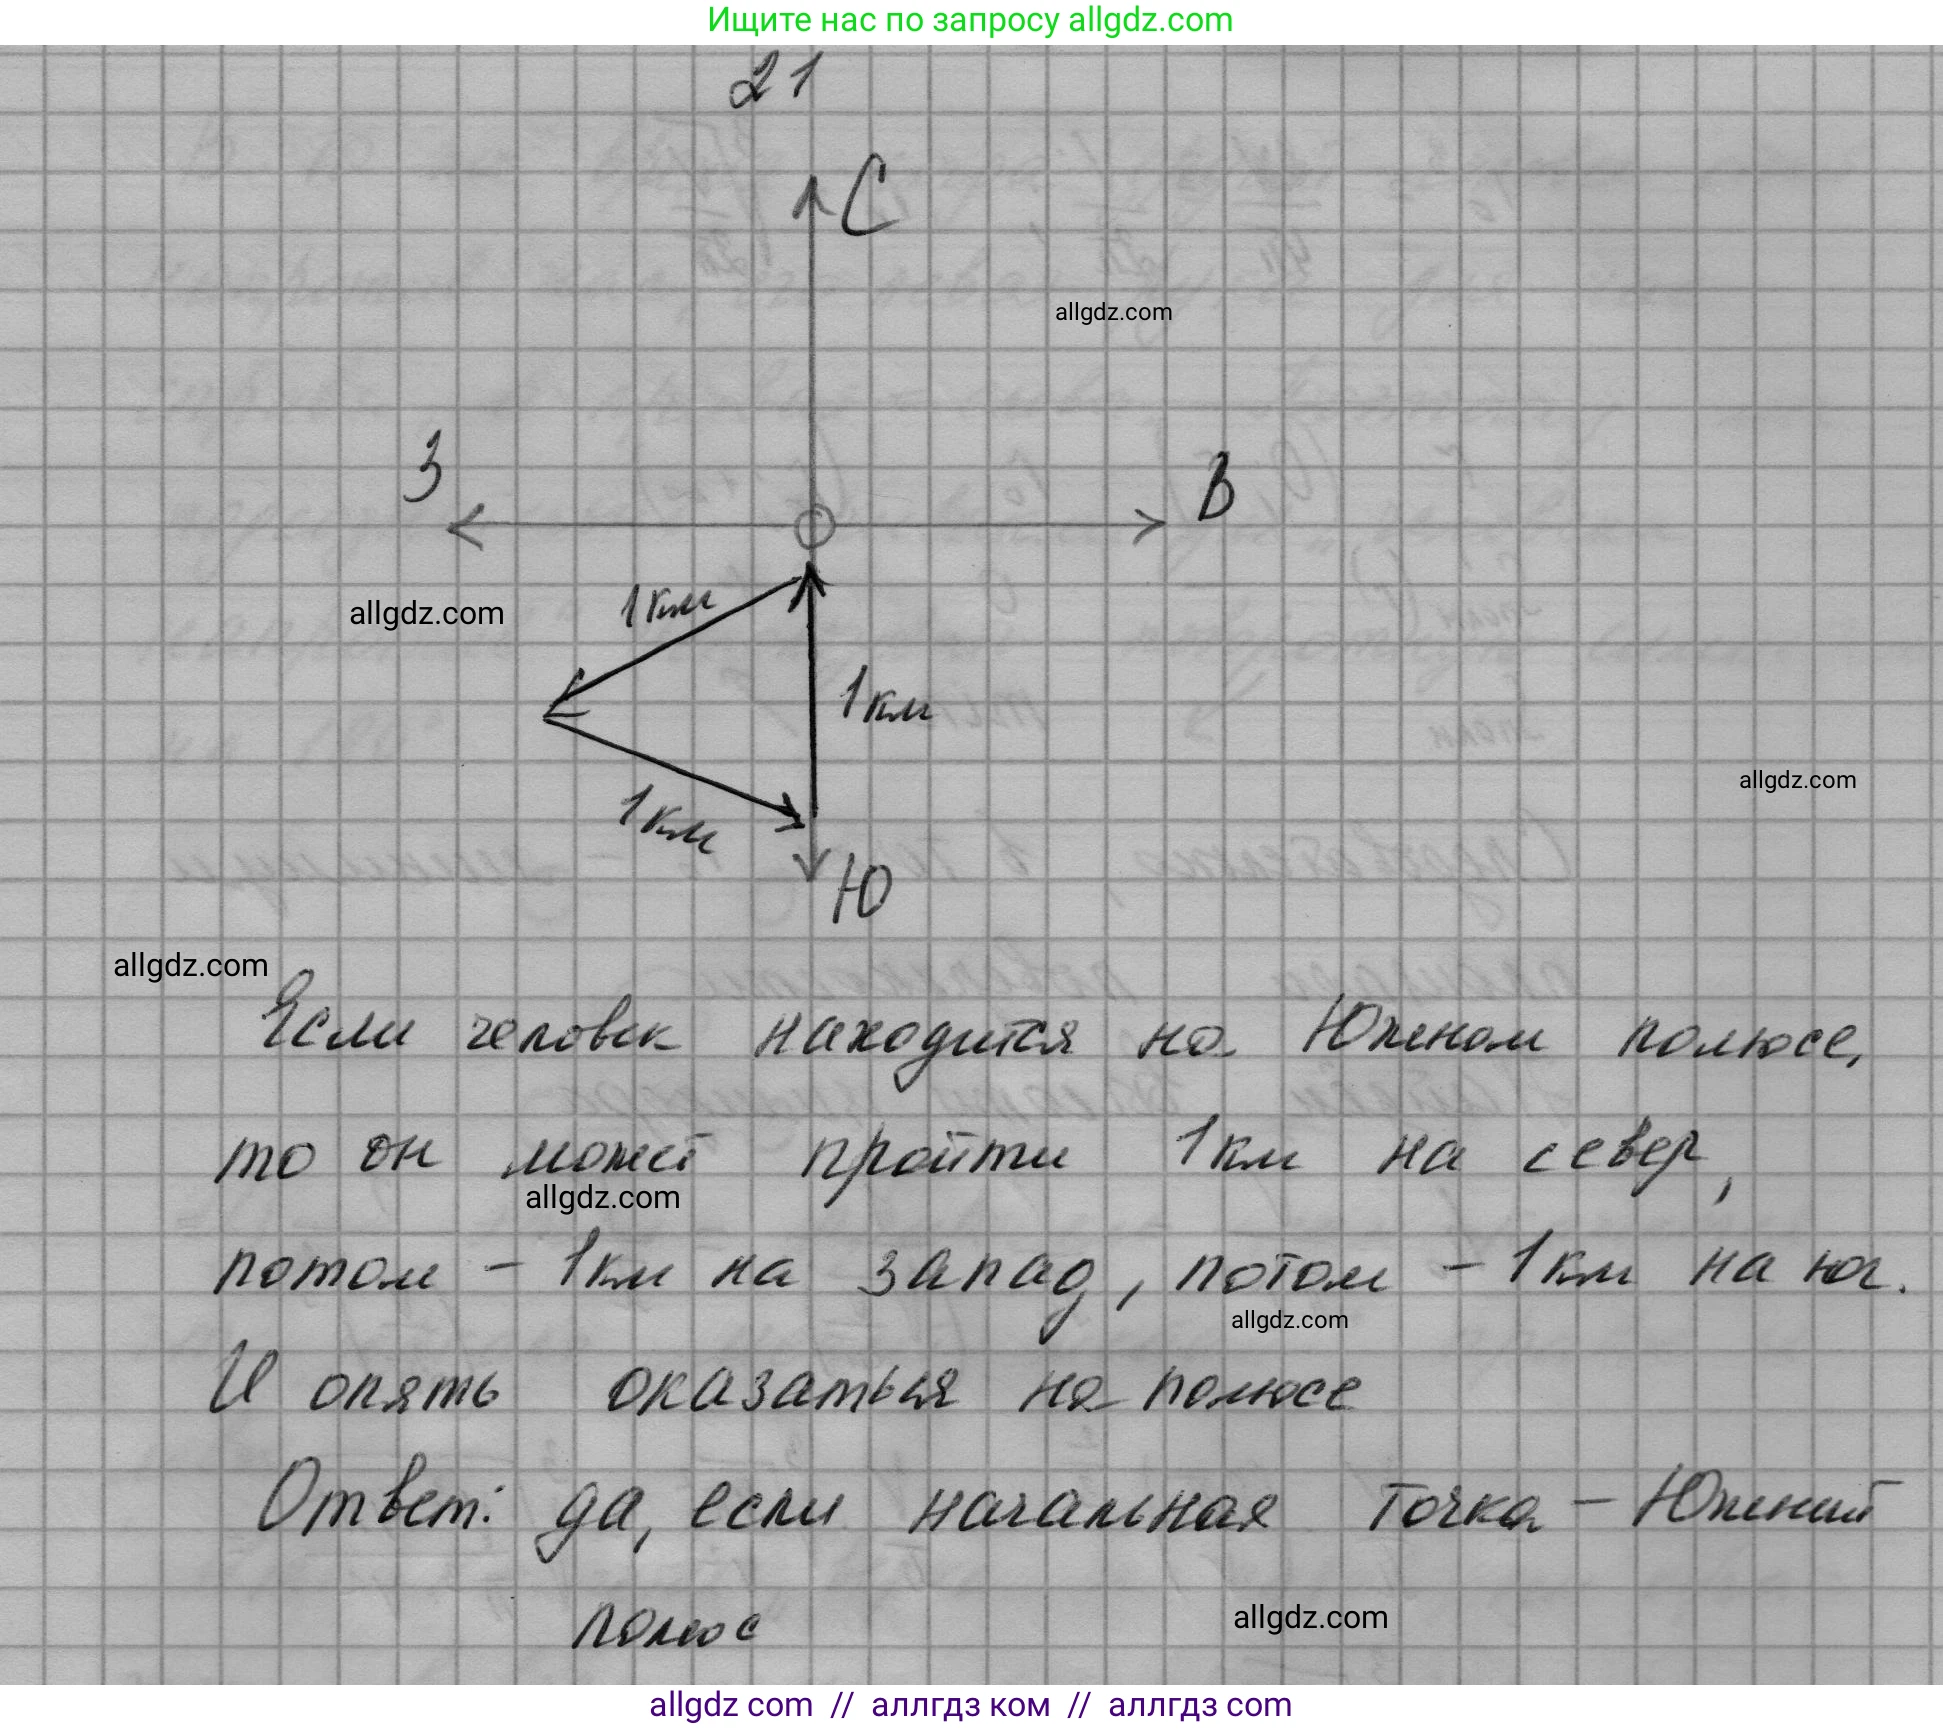 Ищите нас по запросу allgdz.com
21
С
allgdz.com
З
В
allgdz.com
1км
1км
allgdz.com
1км
Ю
allgdz.com
Если человек находится на Южном полюсе,
то он может пройти 1км на север,
allgdz.com
потом - 1км на запад, потом - 1км на юг.
allgdz.com
И опять оказаться на полюсе
Ответ: да, если начальная точка - Южный
полюс
allgdz.com
allgdz com // аллгдз ком // аллгдз com